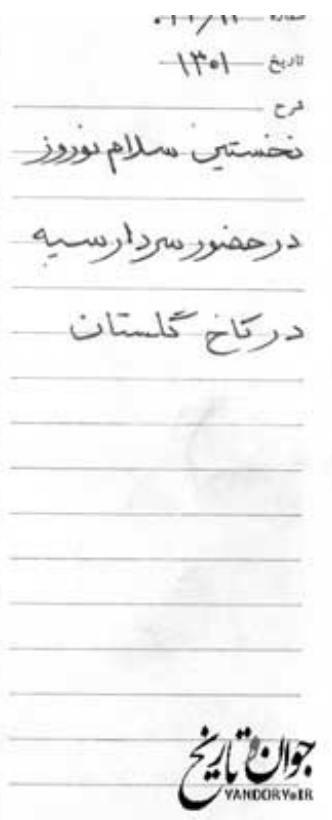 تاریخ ۱۳۰۱
شرح
نخستین سلام نوروز
در حضور سردار سپه
در کاخ گلستان
جوان و تاریخ
YANDORY.IR